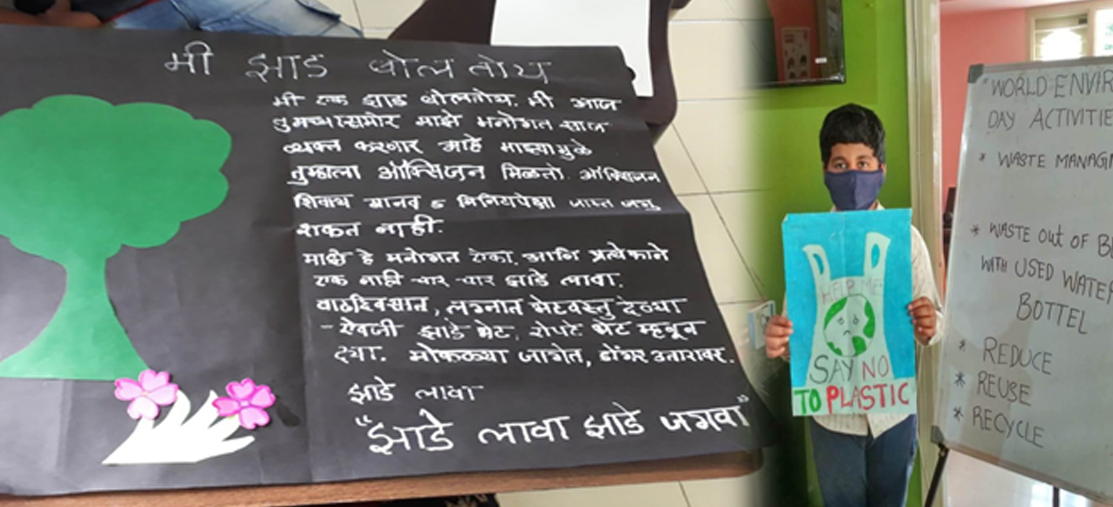 मी झाड बोलतोय
मी एक झाड बोलतोय. मी आज
तुमच्यासमोर माझे मनोगत आज
व्यक्त करणार आहे माझ्यामुळे
तुम्हाला ऑक्सिजन मिळतो. ऑक्सिजन
शिवाय मानव ५ मिनिटापेक्षा जास्त जगू
शकत नाही.
माझे हे मनोगत ऐका. आणि प्रत्येकाने
एक नाही चार-चार झाडे लावा.
वाढदिवसात, लग्नात भेटवस्तु देण्या
-ऐवजी झाडे भेट, रोपटे भेट म्हणून
द्या. मोकळ्या जागेत, डोंगर उतारावर.
झाडे लावा
"झाडे लावा झाडे जगवा"
HELP ME
SAY NO
TO PLASTIC
WORLD ENVIR
DAY ACTIVITIE
* WASTE MANAG
* WASTE OUT OF B
WITH USED WATER
BOTTEL
* REDUCE
* REUSE
* RECYCLE